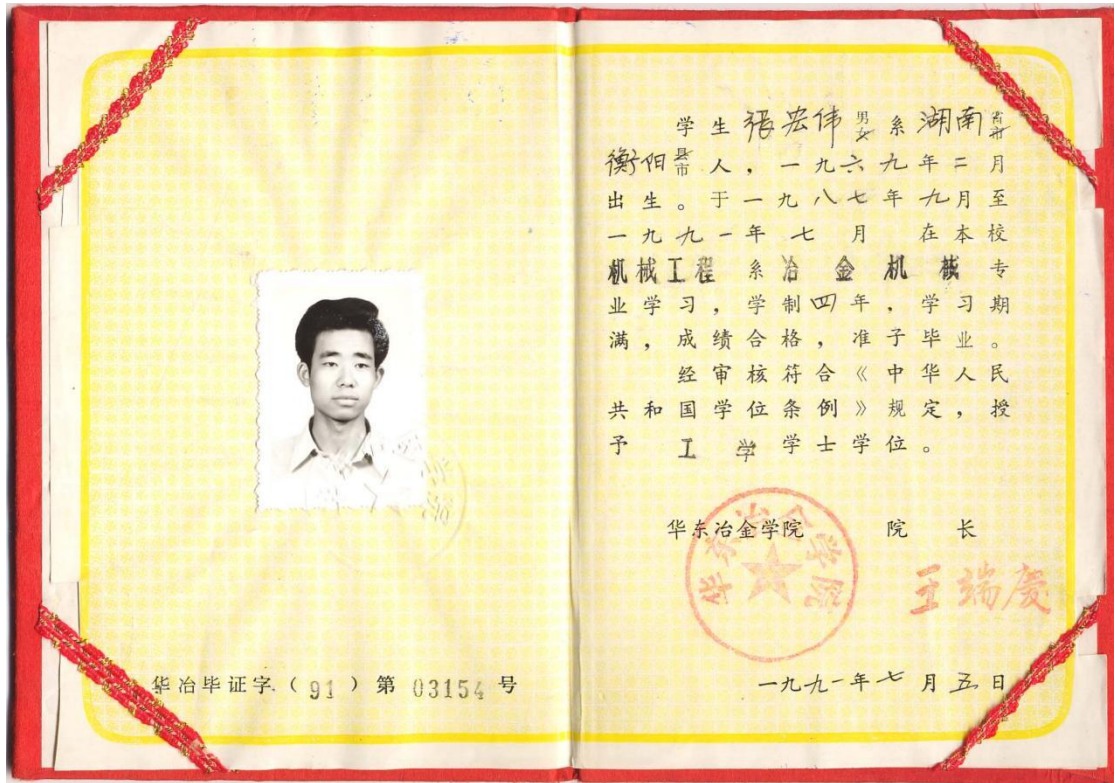 华冶毕证字.（91）第 03154 号
学生 張宏伟 男女 系 湖南 省市
衡阳 县市 人，一九六九年二月
出生。于一九八七年九月至
一九九一年七月 在本校
机械工程 系 冶金机械 专
业学习，学制四年，学习期
满，成绩合格，准予毕业。
经审核符合《中华人民
共和国学位条例》规定，授
予 工学 学士学位。
华东冶金学院 院长
华东冶金学院
王端庆
一九九一年七月五日